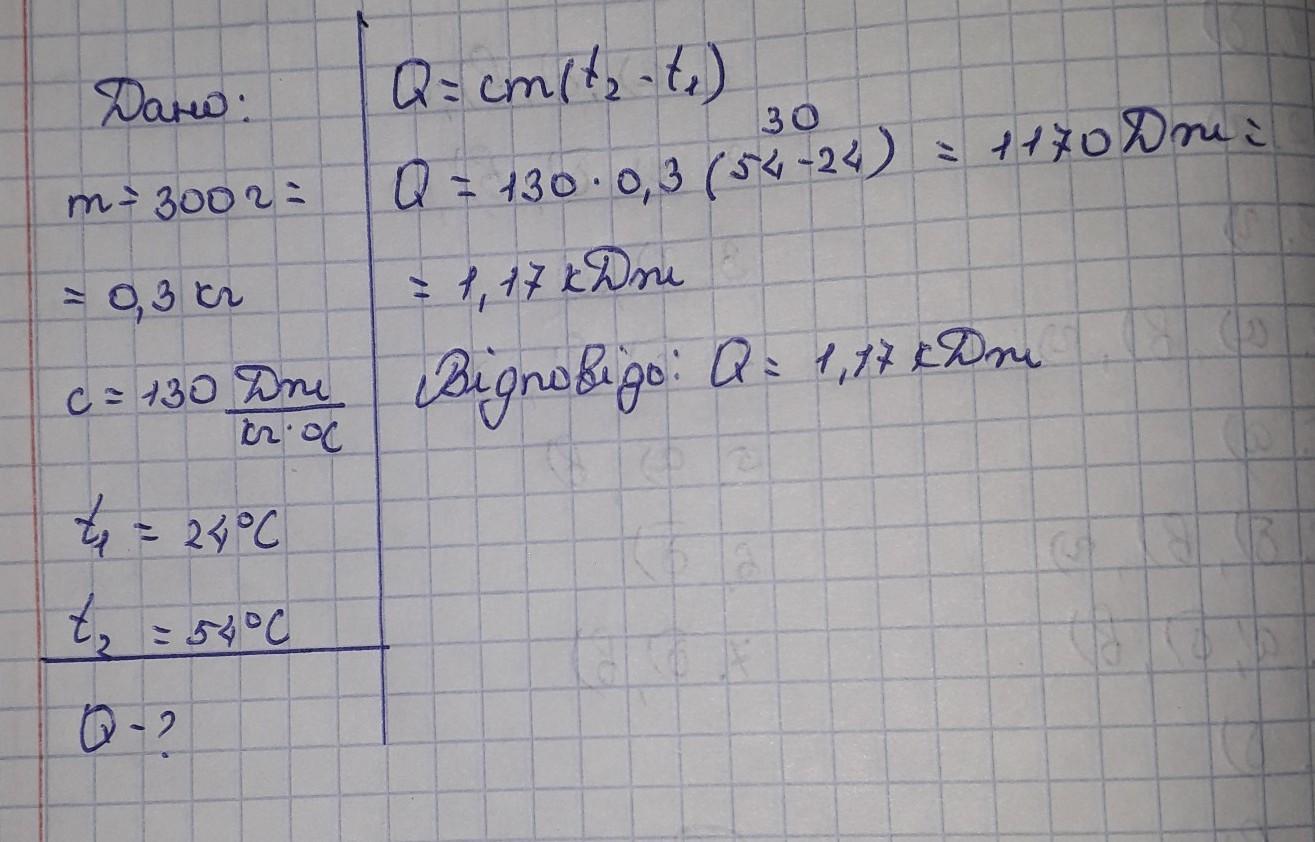 Дано:
m = 300 г =
= 0,3 кг
c = 130 Дж/кг·°C
t₁ = 24°C
t₂ = 54°C
Q - ?
Q = cm(t₂ - t₁)
30
Q = 130 · 0,3 (54-24) = 1170 Дж =
= 1,17 кДж
Відповідь: Q = 1,17 кДж